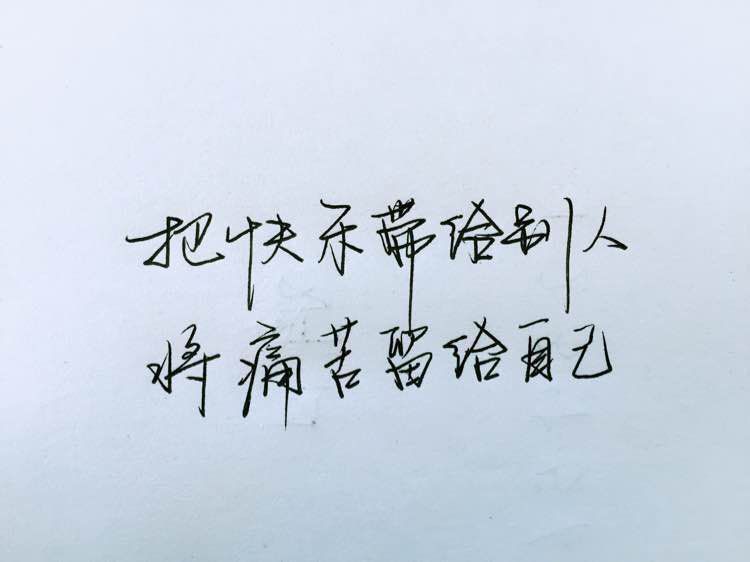 把快乐带给别人
将痛苦留给自己